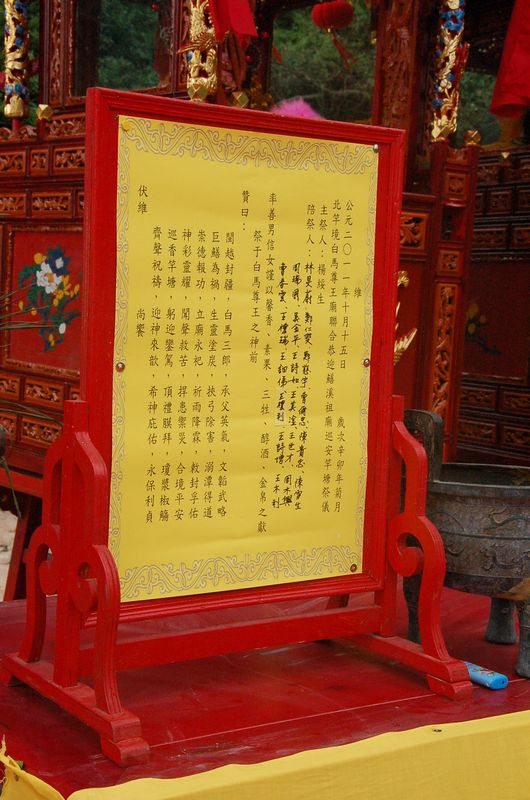 維
公元二〇一一年十月十五日　歲次辛卯年菊月
北竿境白馬尊王廟聯合恭迎鱔溪祖廟巡安竿塘祭儀
主祭人：楊綏生
陪祭人：林昊蔚、曹爾忠、陳貴忠、陳雪生
周瑞國、吳金平、王詩如、王世才、周木興
曹春雲、王禮瑞、王細偈、王禮利、王詩增、王木利
率善男信女謹以馨香、素果、三牲、醇酒、金帛之獻
祭于白馬尊王之神前
贊曰：
閩越封疆，白馬三郎，承父英氣，文韜武略
巨鱔為禍，生靈塗炭，挾弓除害，溺潭得道
崇德報功，立廟永祀，祈雨降霖，敕封孚佑
神彩靈耀，聞聲救苦，捍患禦災，合境平安
巡香竿塘，躬迎鑾駕，頂禮膜拜，瓊漿椒觴
齊聲祝禱，迎神來歆，希神庇佑，永保利貞
伏維　尚饗